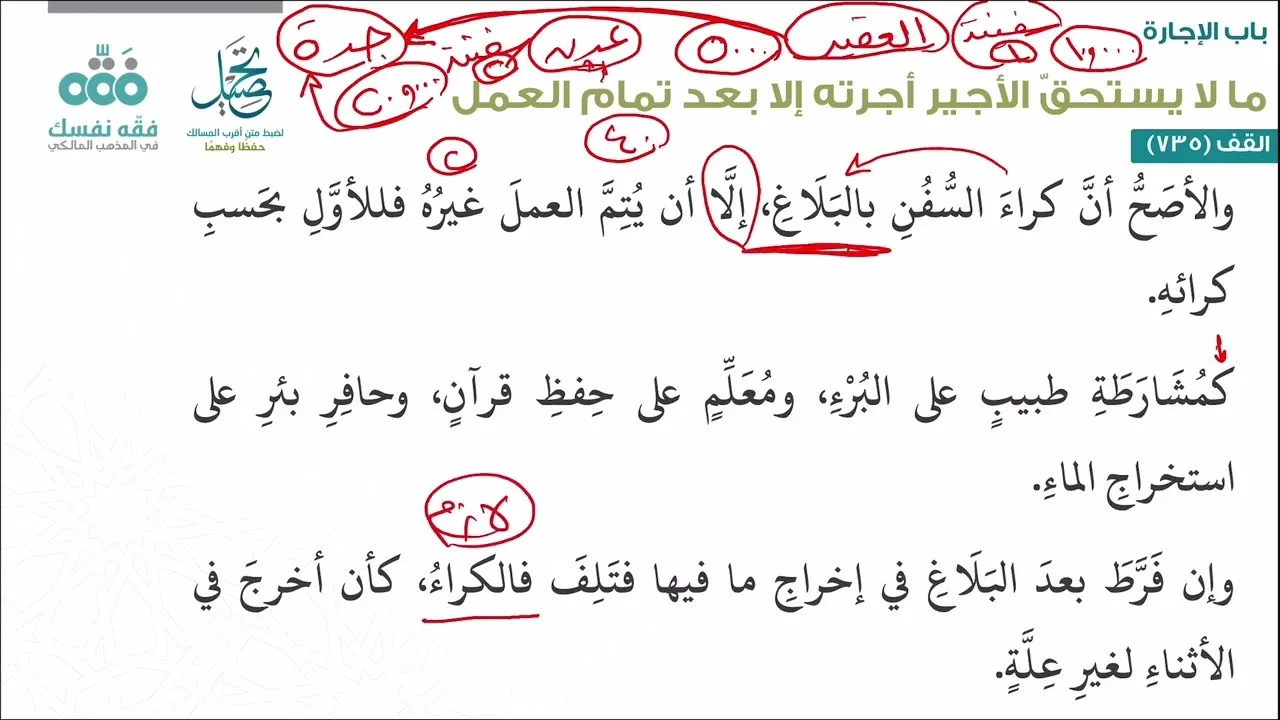 باب الإجارة
سفينة
العقبة
عدن
سفينة
جدة
ما لا يستحقّ الأجير أجرته إلا بعد تمام العمل
تحصيل
لضبط متن أقرب المسالك
حفظا وفهمًا
فقّه
فقّه نفسك
في المذهب المالكي
القف (٧٣٥)
والأصَحُّ أنَّ كراءَ السُّفُنِ بالبَلَاغِ، إلَّا أن يُتِمَّ العملَ غيرُهُ فللأوَّلِ بحَسبِ
كرائهِ.
كَمُشَارَطَةِ طبيبٍ على البُرْءِ، ومُعَلِّمٍ على حِفظِ قرآنٍ، وحافِرِ بئرِ على
استخراجِ الماءِ.
لازم
وإن فَرَّطَ بعدَ البَلَاغِ في إخراجِ ما فيها فتَلِفَ فالكراءُ، كأن أخرجَ في
الأثناءِ لغيرِ عِلَّةٍ.